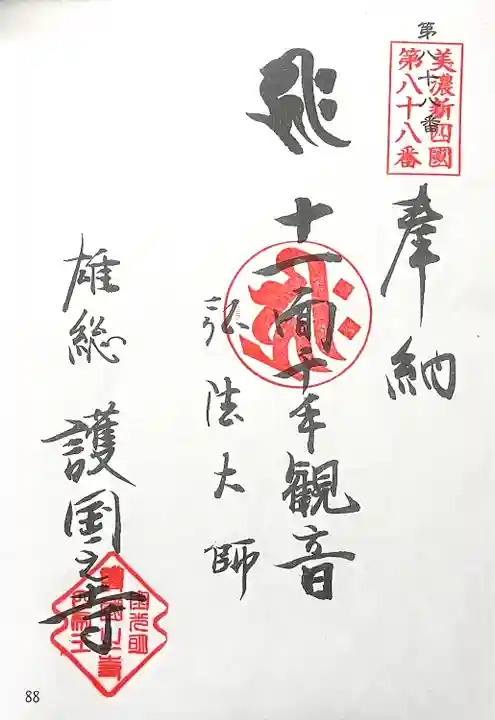 第八十八番
美濃新四國
第八十八番
奉納
十一面千手観音
弘法大師
雄総 護国之寺
88